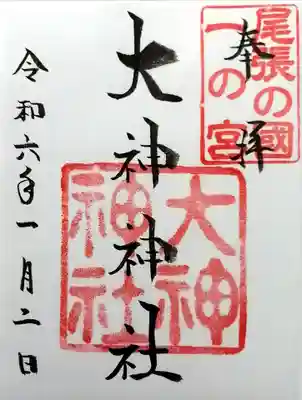 奉拝
尾張の國
一の宮
大神神社
大神
神社
令和六年一月二日